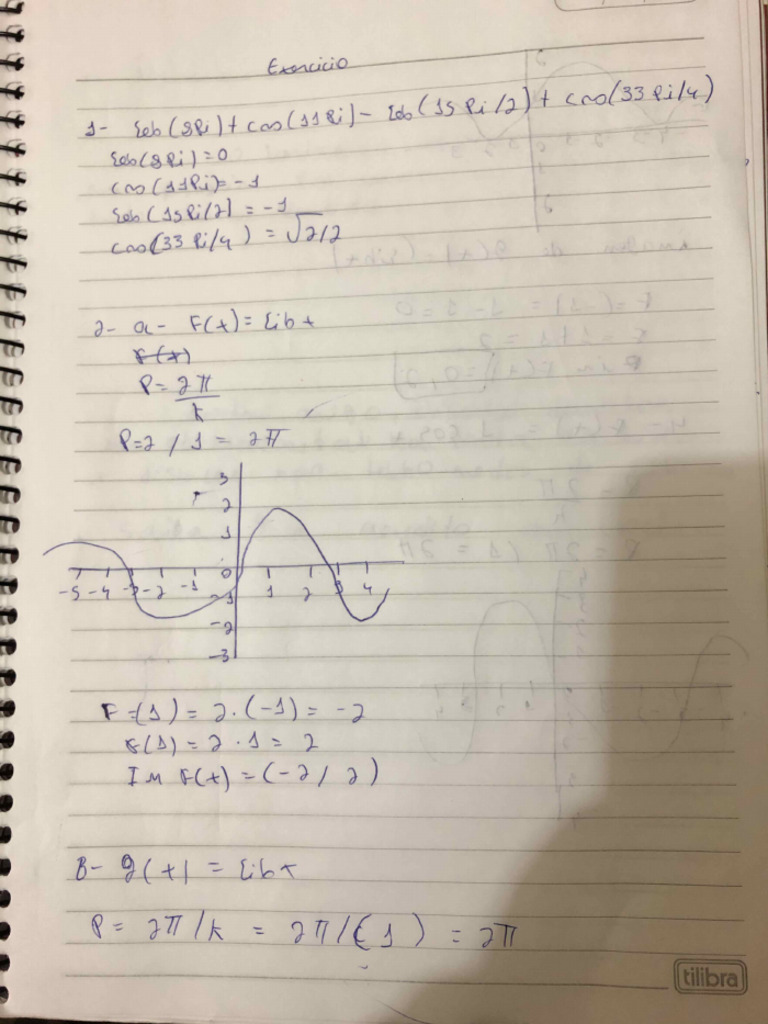 Exercicio
1- Seb(8Pi) + cos(11Pi) - Seb(15Pi/2) + cos(33Pi/4)
Seb(8Pi) = 0
cos(11Pi) = -1
Seb(15Pi/2) = -1
cos(33Pi/4) = √2/2
2- a- F(x) = Sibx
F(x)
P = 2π
k
P=2/1 = 2π
3
2
1
0
-5 -4 -3 -2 -1 1 2 3 4
-1
-2
-3
F=(1) = 2.(-1) = -2
F(1) = 2 . 1 = 2
Im F(x) = (-2/2)
B- g(x) = Sibx
P = 2π/k = 2π/(1) = 2π
tilibra